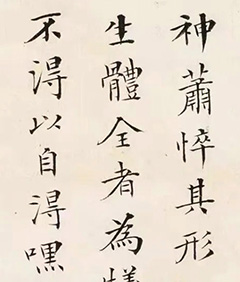 神蕭悴其形
生體全者為犠
不得以自得嘿